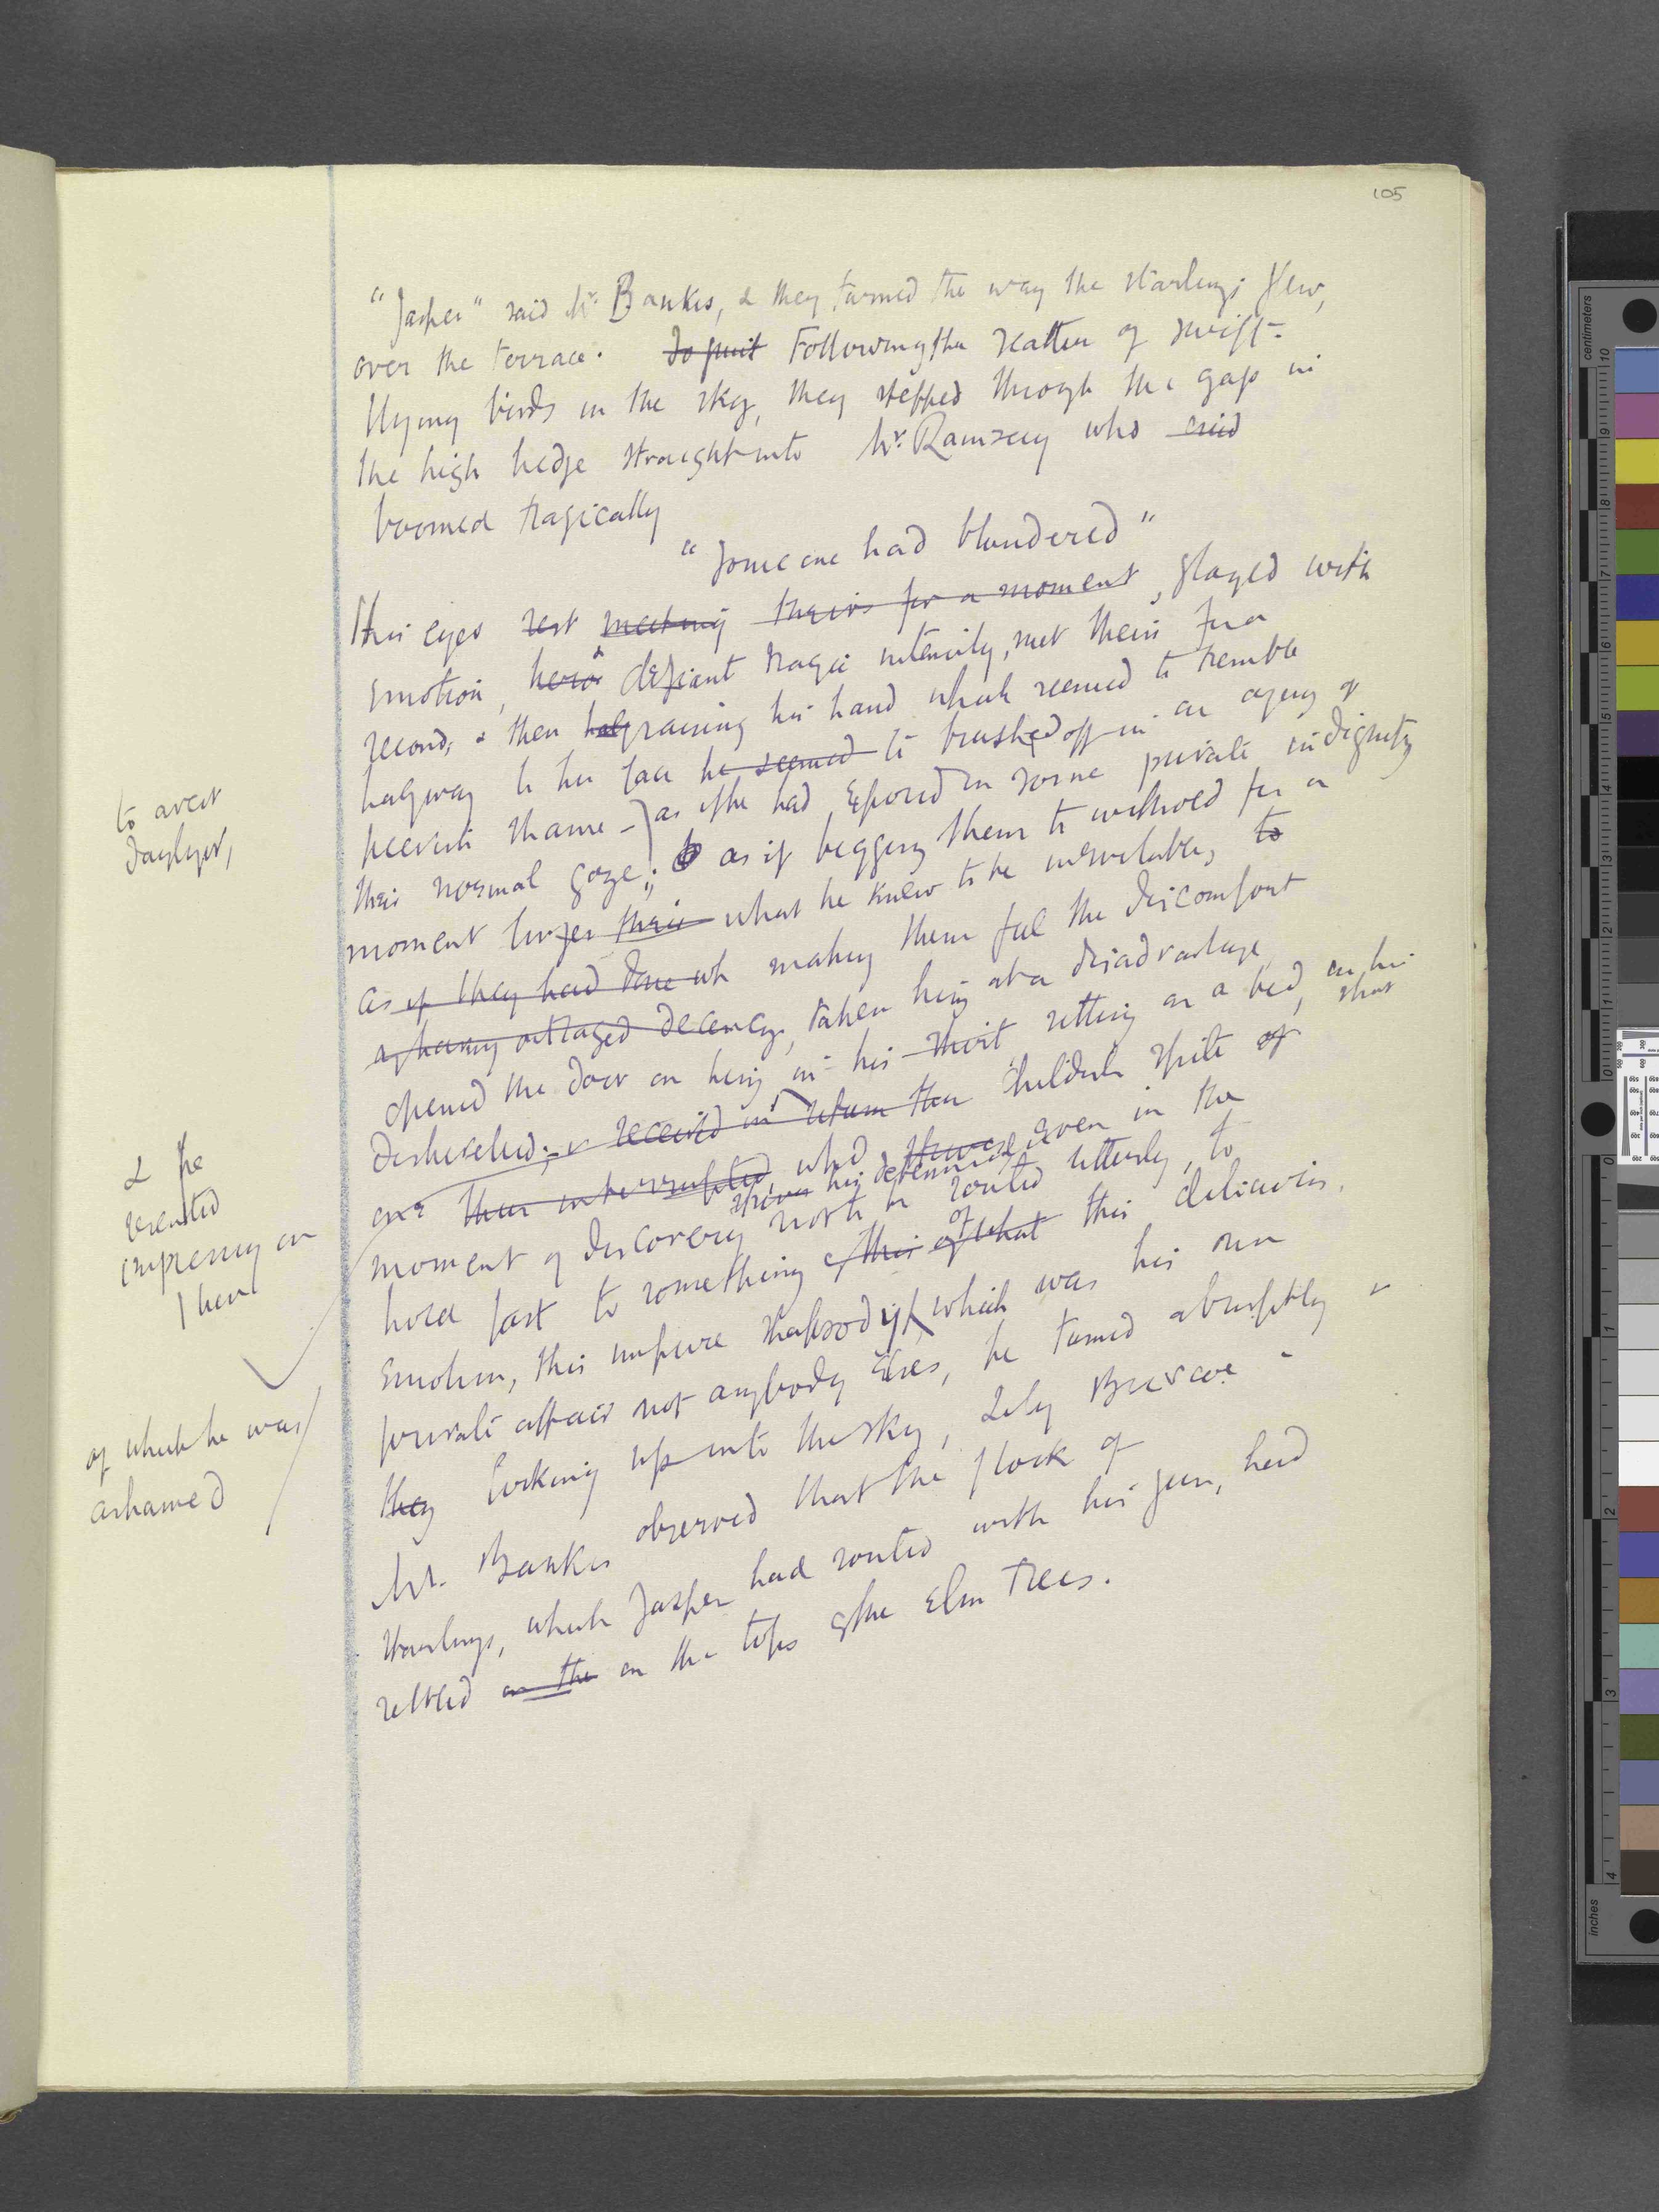 105
"Jasper" said Mr. Bankes, & they turned the way the starlings flew,
over the terrace. Following the scatter of swift-
flying birds in the sky, they stepped through the gap in
the high hedge straight into Mr. Ramsay who said
boomed tragically
"Some one had blundered"
His eyes rest meeting theirs for a moment, glazed with
emotion, & defiant tragic intensity, met theirs for a
second, & then half raising his hand which seemed to tremble
halfway to his face he seemed to brushed off in an agony of
peevish shame - as if he had exposed in some private indignity
to avert
daylight,
their normal gaze; as if begging them to withhold for a
moment longer their what he knew to be inevitable, to
as if they had done wh making them feel the discomfort
of having outraged decency, taken him at a disadvantage
opened the door on him, in his shirt, sitting on a bed, in his
shirt
dishevelled; & received in return their childish spite of
& he
resented
impressing on
them
one then interrupted, who even in the
moment of discovery not to be routed utterly, to
hold fast to something of this of what this delicious
emotion, this impure rhapsody, which was his own
of which he was
ashamed
private affair not anybody elses, he turned abruptly &
they looking up into the sky, Lily Briscoe &
Mr. Bankes observed that the flock of
starlings, which Jasper had routed with his gun, had
settled on the on the tops of the elm trees.
centimeters
inches